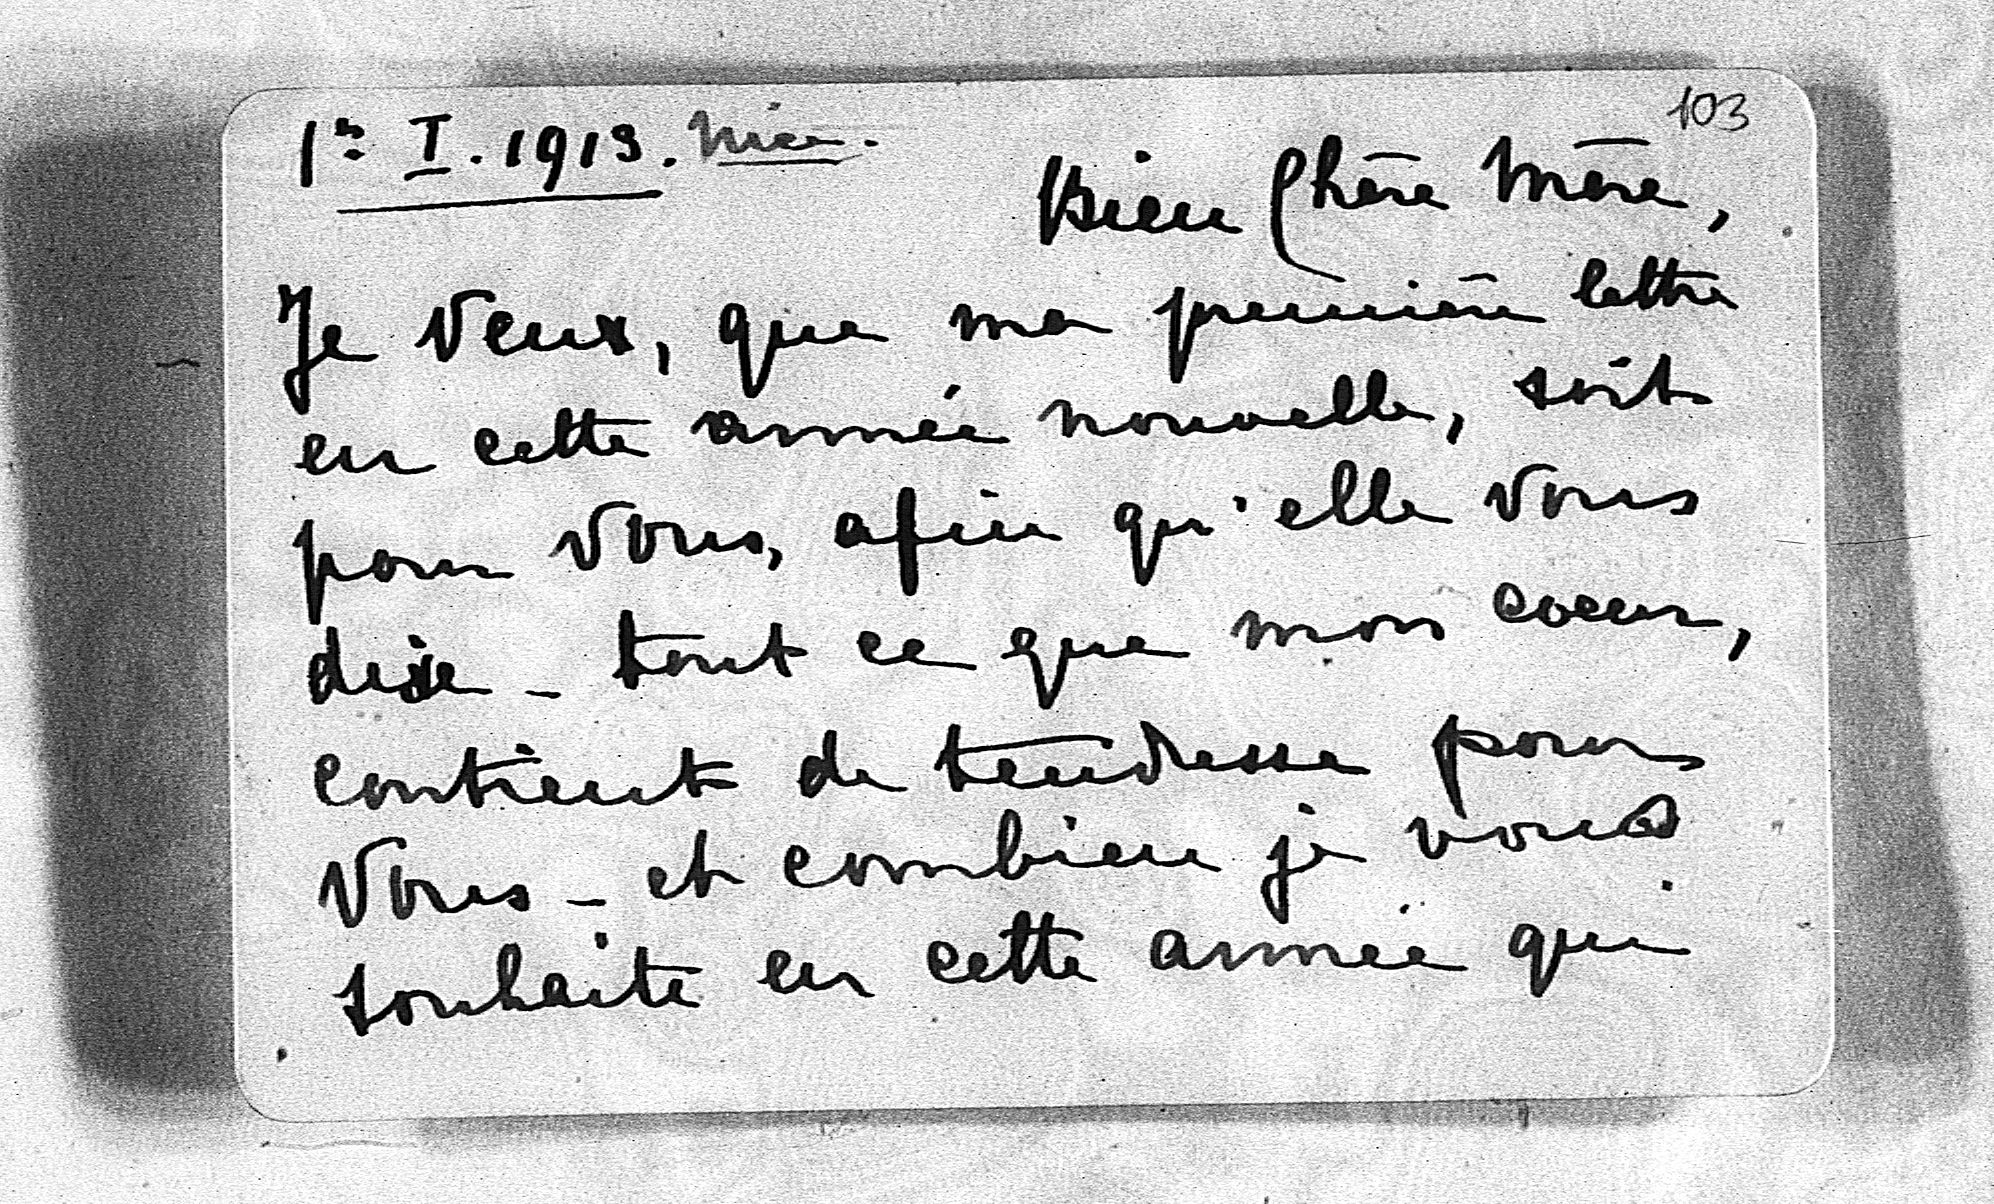 103
1er I. 1913. Nice.
Bien Chère Mère,
Je veux, que ma première lettre
en cette année nouvelle, soit
pour vous, afin qu'elle vous
dise - tout ce que mon coeur,
contient de tendresse pour
vous - et combien je vous
souhaite en cette année qui